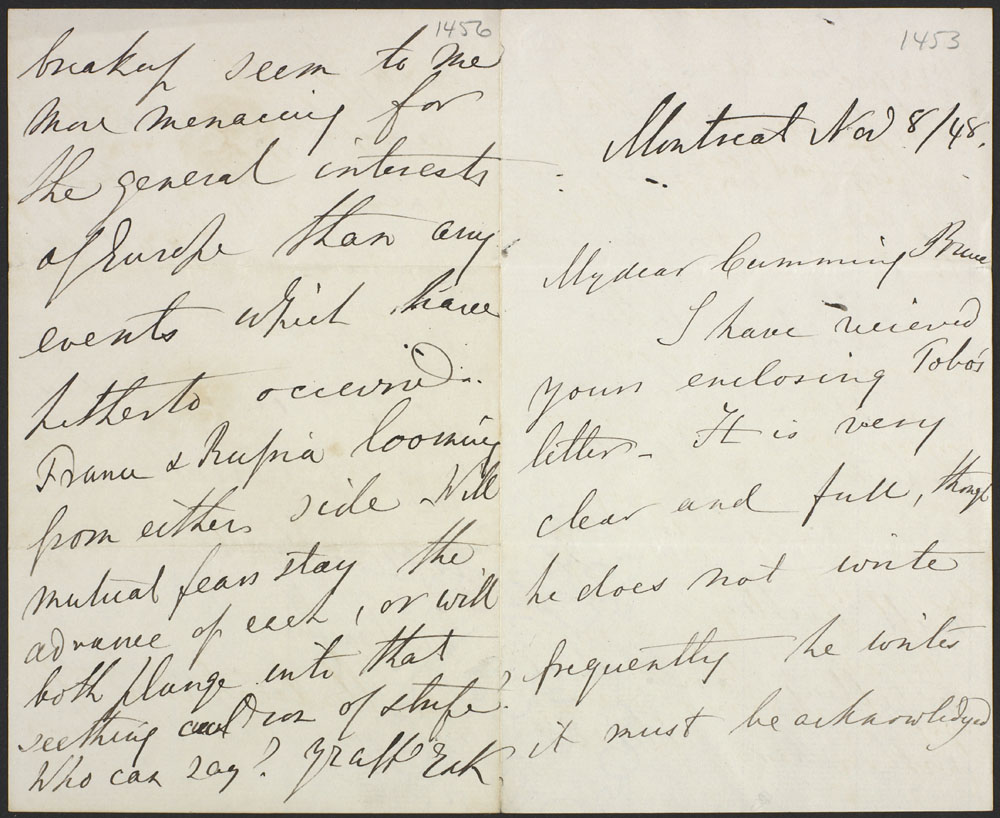 1456
breakup seem to me
more menacing for
the general interests
of Europe than any
events which have
hitherto occurred.
France & Russia looming
from either side Will
mutual fears stay the
advance of each, or will
both plunge into that
seething cauldron of strife?
Who can say? Yr aff E&K
1453
Montreal Nov 8/48.
My dear Cumming Bruce
I have recieved
yours enclosing Tobo's
letter - It is very
clear and full, though
he does not write
frequently he writes
it must be acknowledged